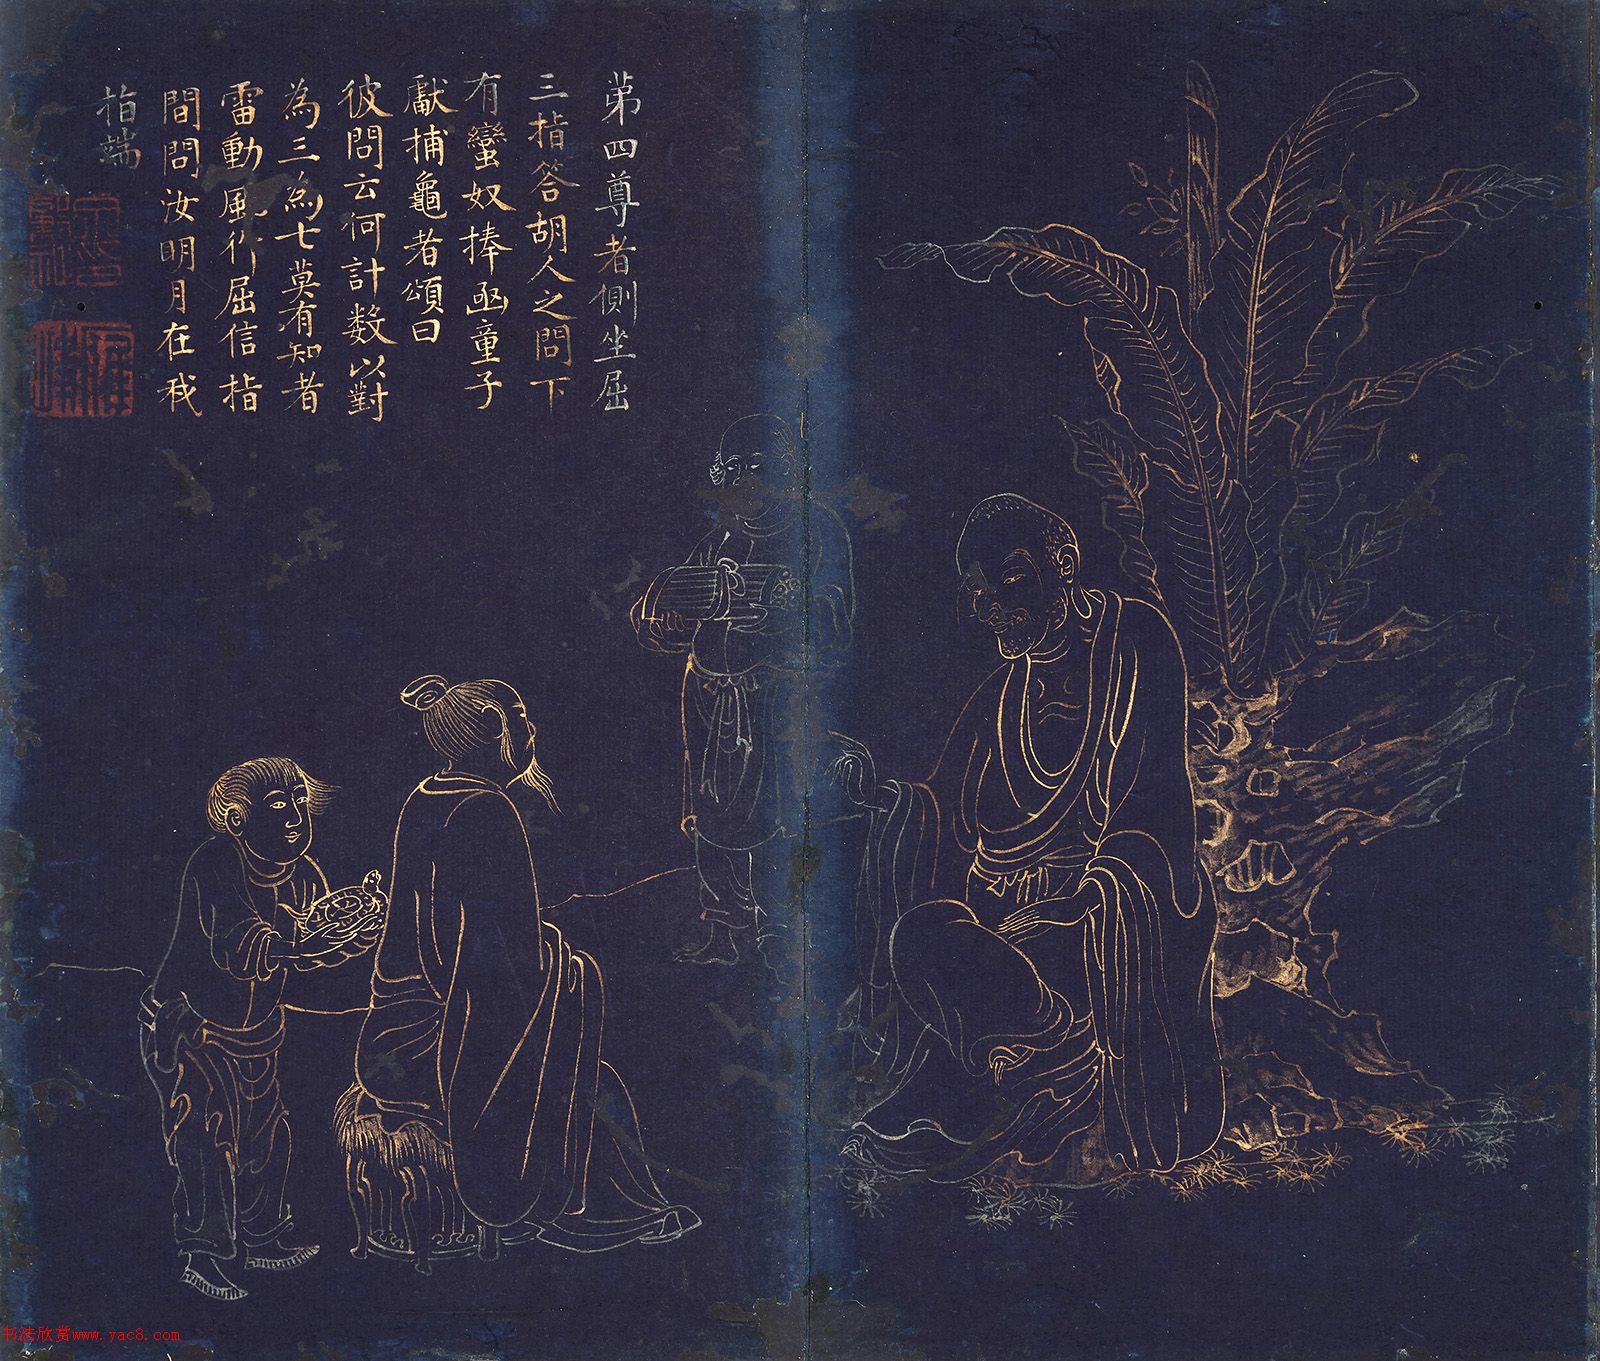 第四尊者側坐屈
三指答胡人之問下
有蠻奴捧函童子
獻捕龜者頌曰
彼問云何計數以對
為三為七莫有知者
雷動風行屈信指
間問汝明月在我
指端
书法欣赏www.yac8.com